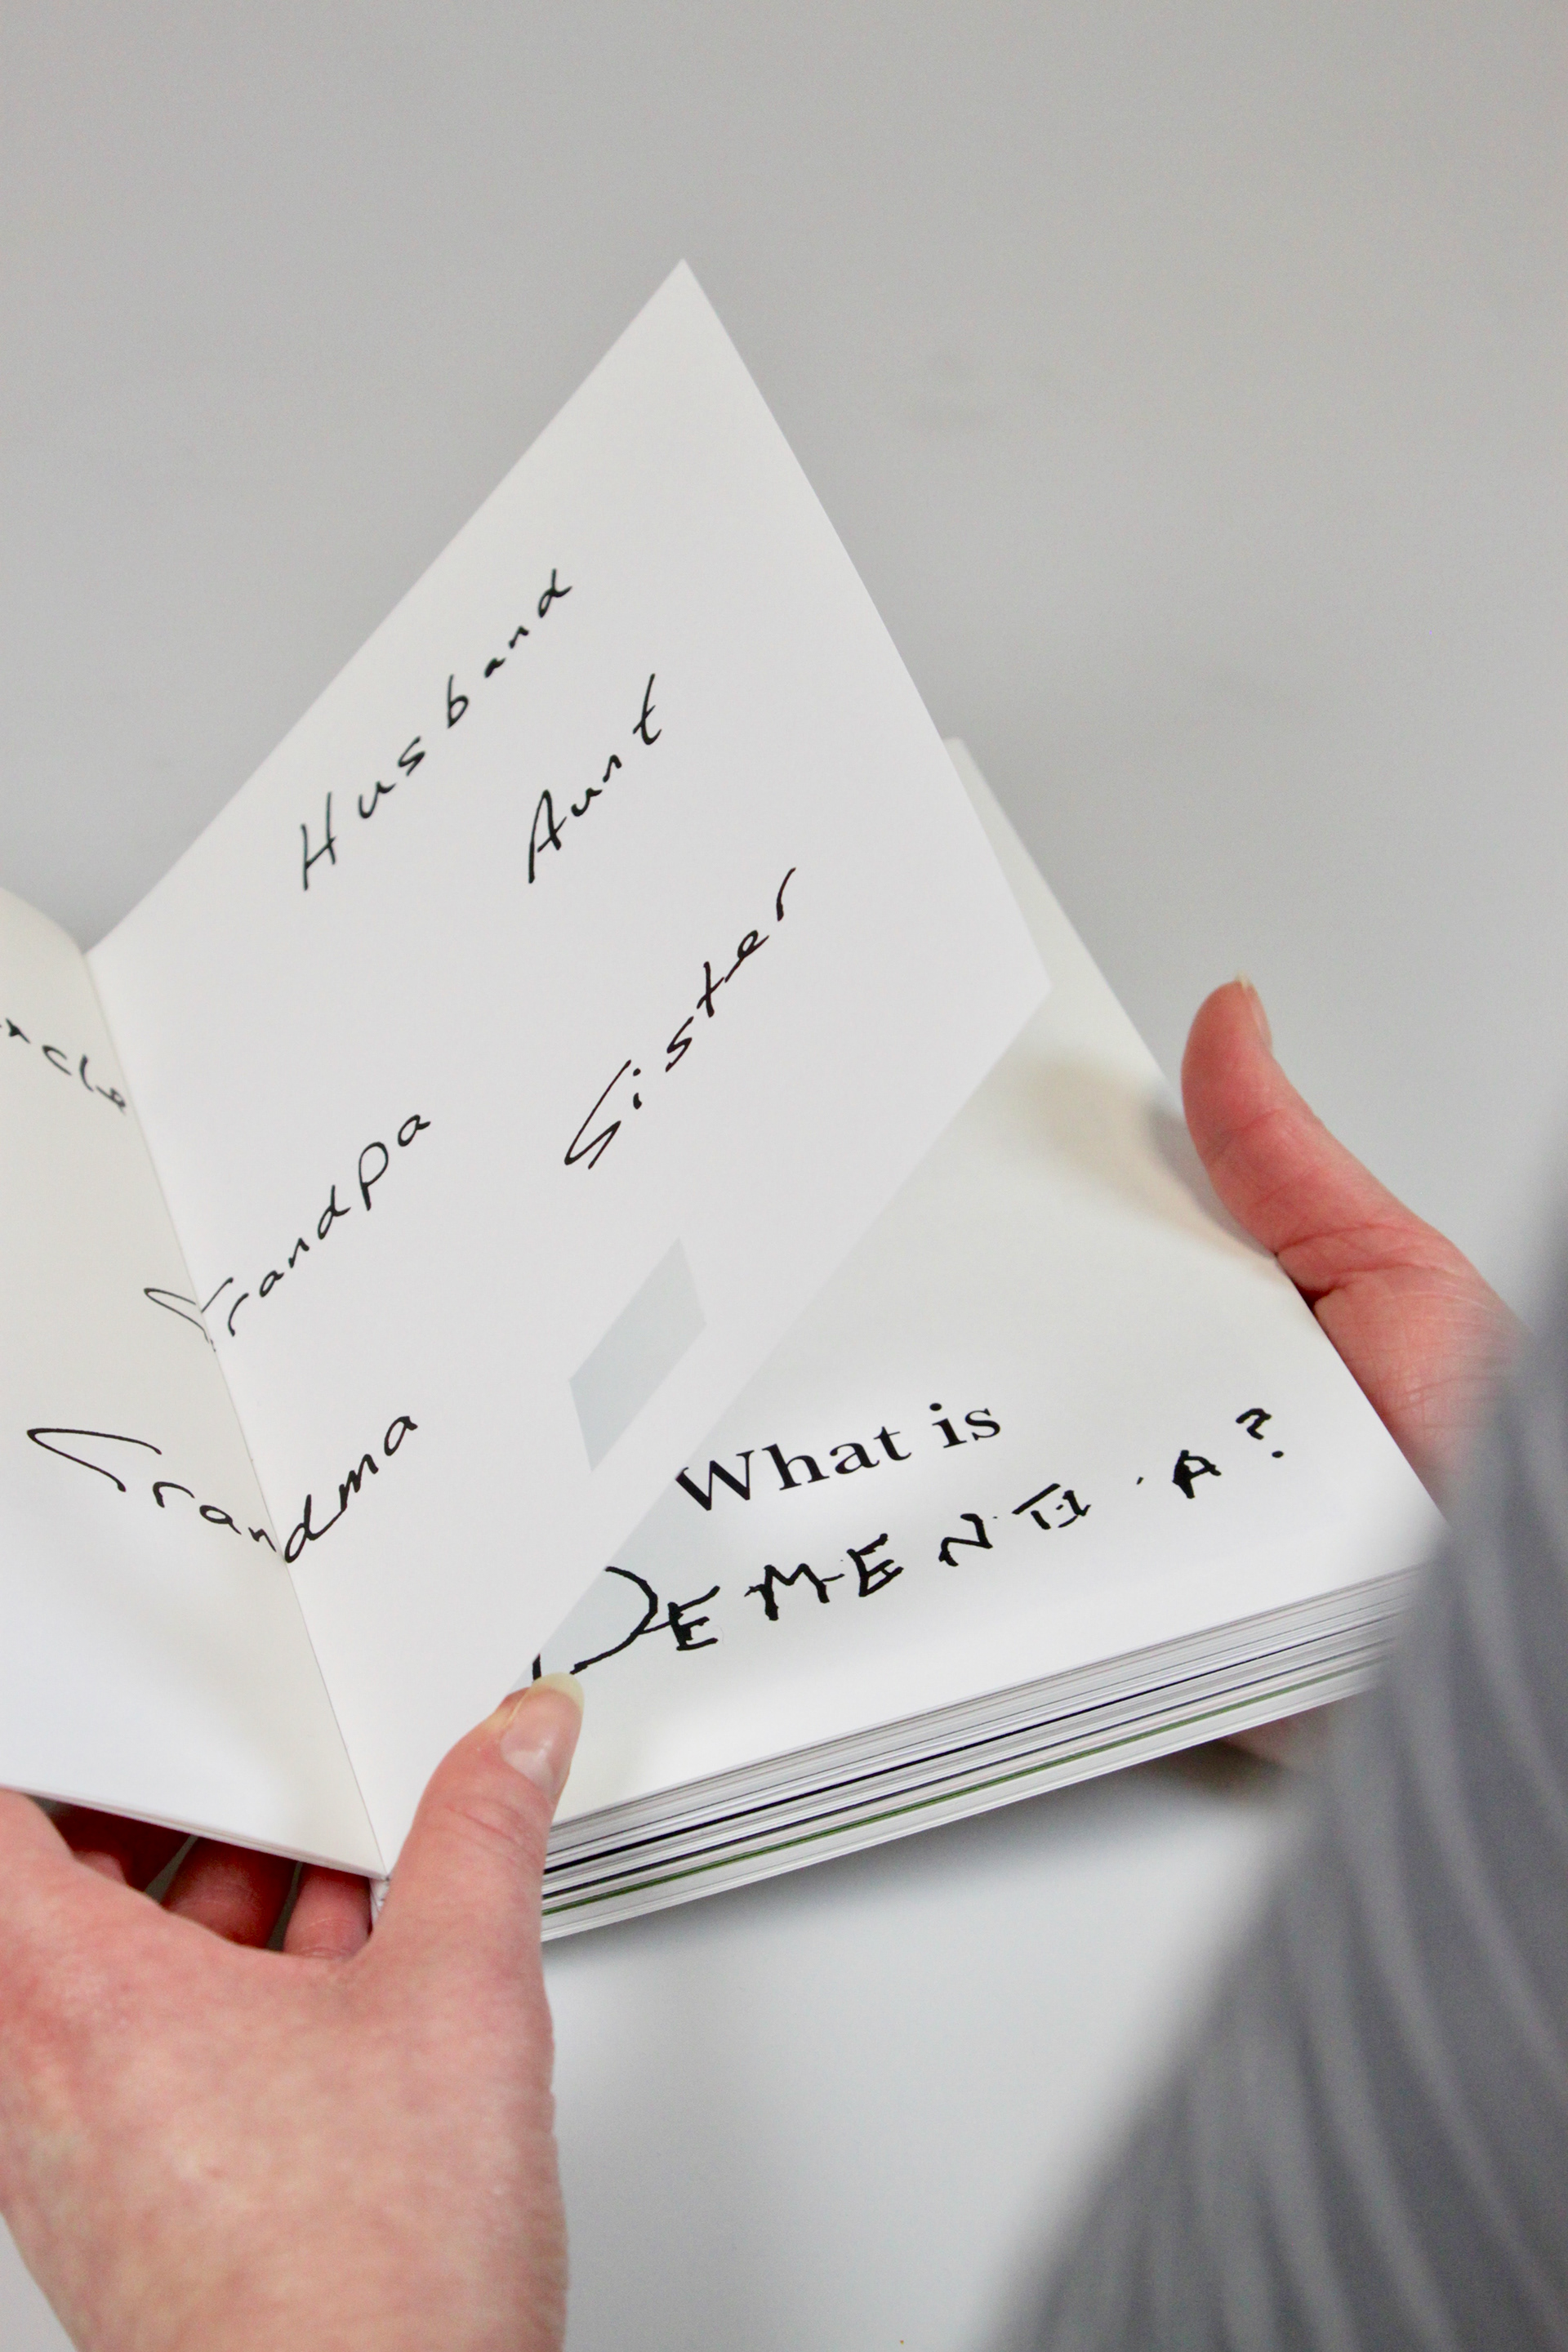 Husband
Aunt
Sister
Grandpa
Grandma
What is
DEMENTIA?